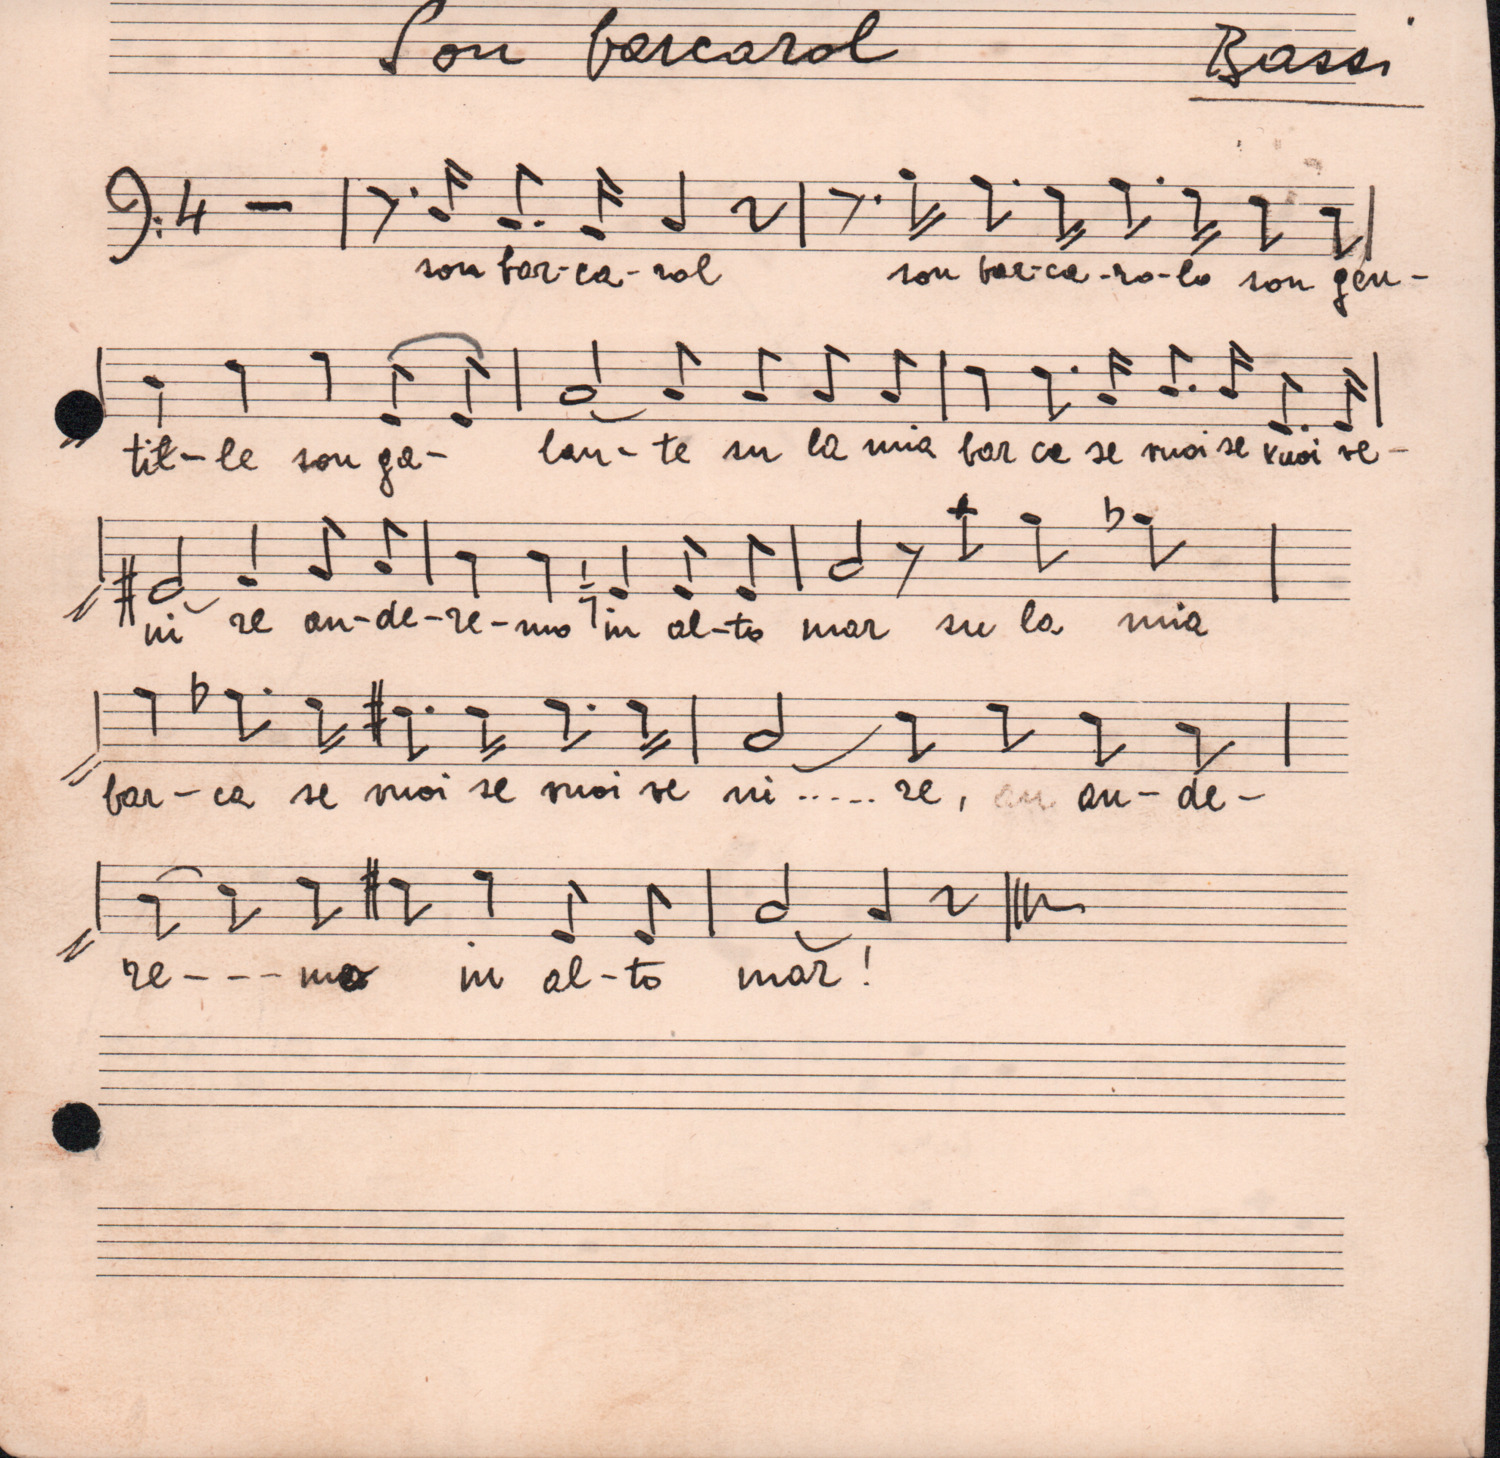 Son barcarol Bassi
4
son bar-ca-rol son bar-ca-ro-lo son gen-
til-le son ga- lan-te su la mia bar ca se vuoi se vuoi ve-
ni re an-de-re-mo in al-to mar su la mia
bar-ca se vuoi se vuoi ve ni ..... re, an an-de-
re---mo in al-to mar!